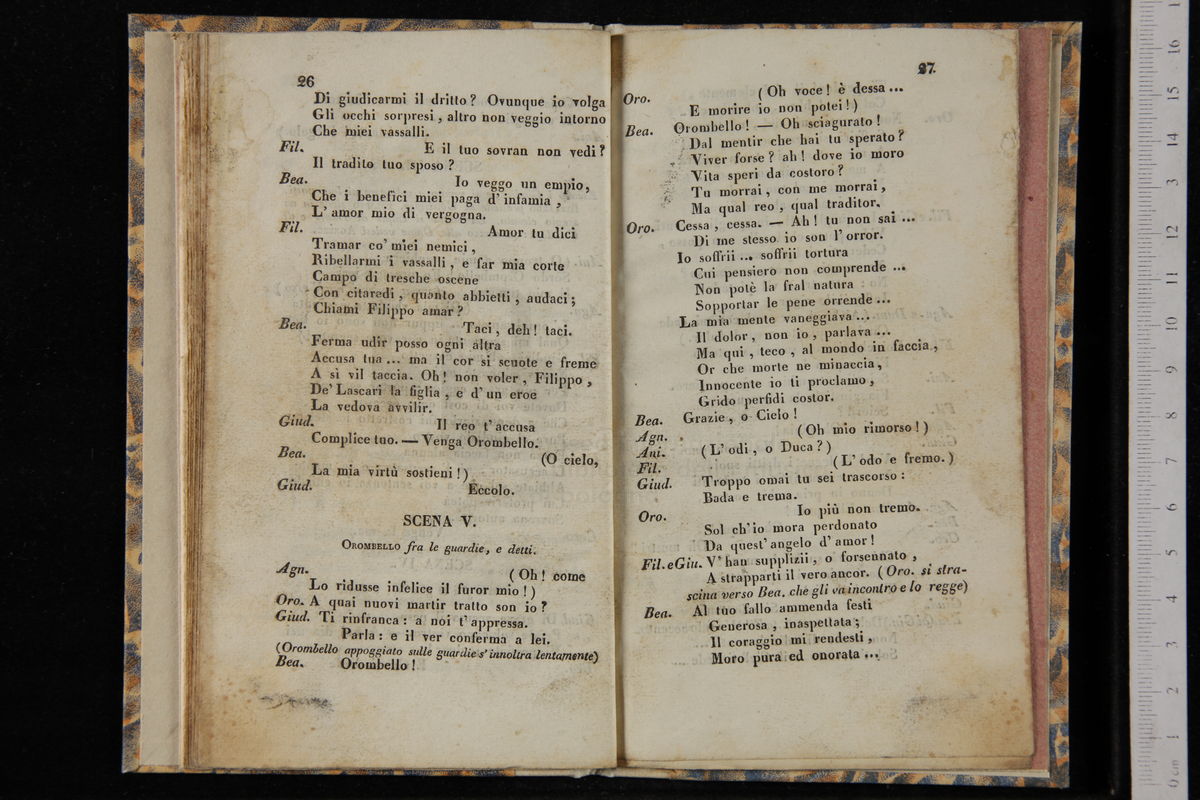 26
Di giudicarmi il dritto? Ovunque io volga
Gli occhi sorpresi, altro non veggio intorno
Che miei vassalli.
Fil. E il tuo sovran non vedi?
Il tradito tuo sposo?
Bea. Io veggo un empio,
Che i benefici miei paga d'infamia,
L'amor mio di vergogna.
Fil. Amor tu dici
Tramar co' miei nemici,
Ribellarmi i vassalli, e far mia corte
Campo di tresche oscene
Con citaredi, quanto abbietti, audaci;
Chiami Filippo amar?
Bea. Taci, deh! taci.
Ferma udir posso ogni altra
Accusa tua ... ma il cor si scuote e freme
A sì vil taccia. Oh! non voler, Filippo,
De' Lascari la figlia, e d'un eroe
La vedova avvilir.
Giud. Il reo t'accusa
Complice tuo. — Venga Orombello.
Bea. (O cielo,
La mia virtù sostieni!)
Giud. Eccolo.
SCENA V.
OROMBELLO fra le guardie, e detti.
Agn. (Oh! come
Lo ridusse infelice il furor mio!)
Oro. A quai nuovi martir tratto son io?
Giud. Ti rinfranca: a noi t'appressa.
Parla: e il ver conferma a lei.
(Orombello appoggiato sulle guardie s'innoltra lentamente)
Bea. Orombello!
27.
Oro. (Oh voce! è dessa ...
E morire io non potei!)
Bea. Orombello! — Oh sciagurato!
Dal mentir che hai tu sperato?
Viver forse? ah! dove io moro
Vita speri da costoro?
Tu morrai, con me morrai,
Ma qual reo, qual traditor.
Oro. Cessa, cessa. — Ah! tu non sai ...
Di me stesso io son l'orror.
Io soffrii ... soffrii tortura
Cui pensiero non comprende ...
Non potè la fral natura
Sopportar le pene orrende ...
La mia mente vaneggiava ...
Il dolor, non io, parlava ...
Ma qui, teco, al mondo in faccia,
Or che morte ne minaccia,
Innocente io ti proclamo,
Grido perfidi costor.
Bea. Grazie, o Cielo!
Agn. (Oh mio rimorso!)
Ani. (L'odi, o Duca?)
Fil. (L'odo e fremo.)
Giud. Troppo omai tu sei trascorso:
Bada e trema.
Oro. Io più non tremo.
Sol ch'io mora perdonato
Da quest'angelo d'amor!
Fil. e Giu. V'han supplizii, o forsennato,
A strapparti il vero ancor. (Oro. si stra-
scina verso Bea. che gli va incontro e lo regge)
Bea. Al tuo fallo ammenda festi
Generosa, inaspettata;
Il coraggio mi rendesti,
Moro pura ed onorata ...
0 cm 1 2 3 4 5 6 7 8 9 10 11 12 13 14 15 16